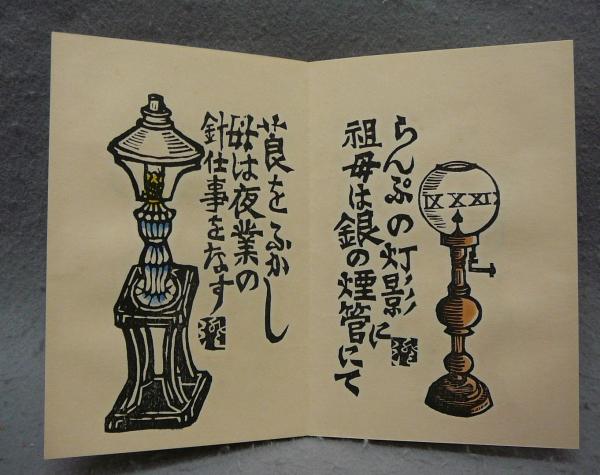 らんぷの灯影に
祖母は銀の煙管にて
莨をふかし
母は夜業の
針仕事をなす
IX X XI